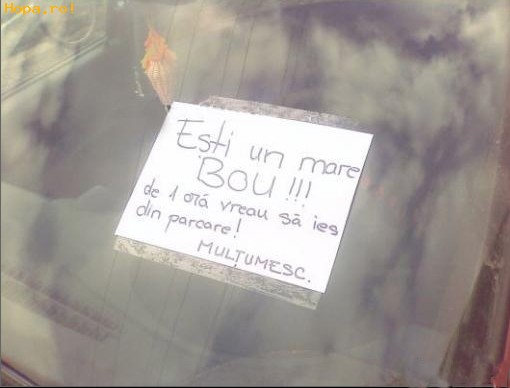 Hapa.ro!
Ești un mare
BOU!!!
de 1 oră vreau să ies
din parcare!
MULȚUMESC.